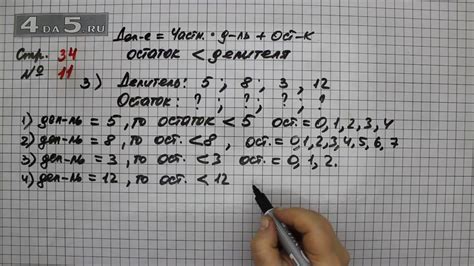 4DA5.RU
Дел-е = Частн. · д-ль + Ост-к
Стр. 34
остаток < делителя
№ 11
3) Делитель: 5 ; 8 ; 3 , 12
Остаток: ? ; ? ; ? ; ?
1) дел-ль = 5, то остаток < 5 ост. = 0, 1, 2, 3, 4
2) дел-ль = 8, то ост. < 8, ост. = 0, 1, 2, 3, 4, 5, 6, 7
3) дел-ль = 3, то ост. < 3 ост. = 0, 1, 2.
4) дел-ль = 12, то ост. < 12